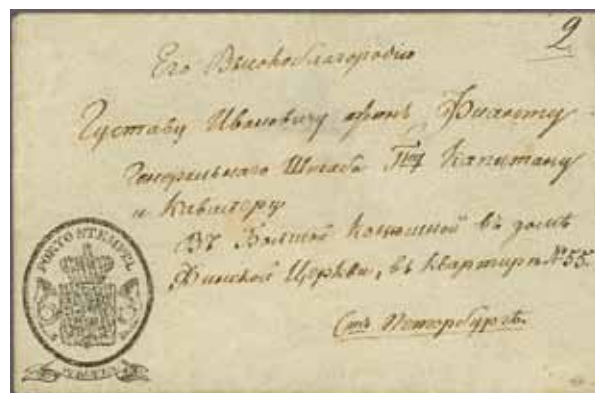 2
Его Высокоблагородію
Густаву Ивановичу фонъ
Генеральнаго Штаба Гну Капитану
и Кавалеру
Въ Большой Конюшенной въ домѣ
Финской Церкви, въ квартирѣ №55.
Стъ Петербургъ.
PORTO STEMPEL